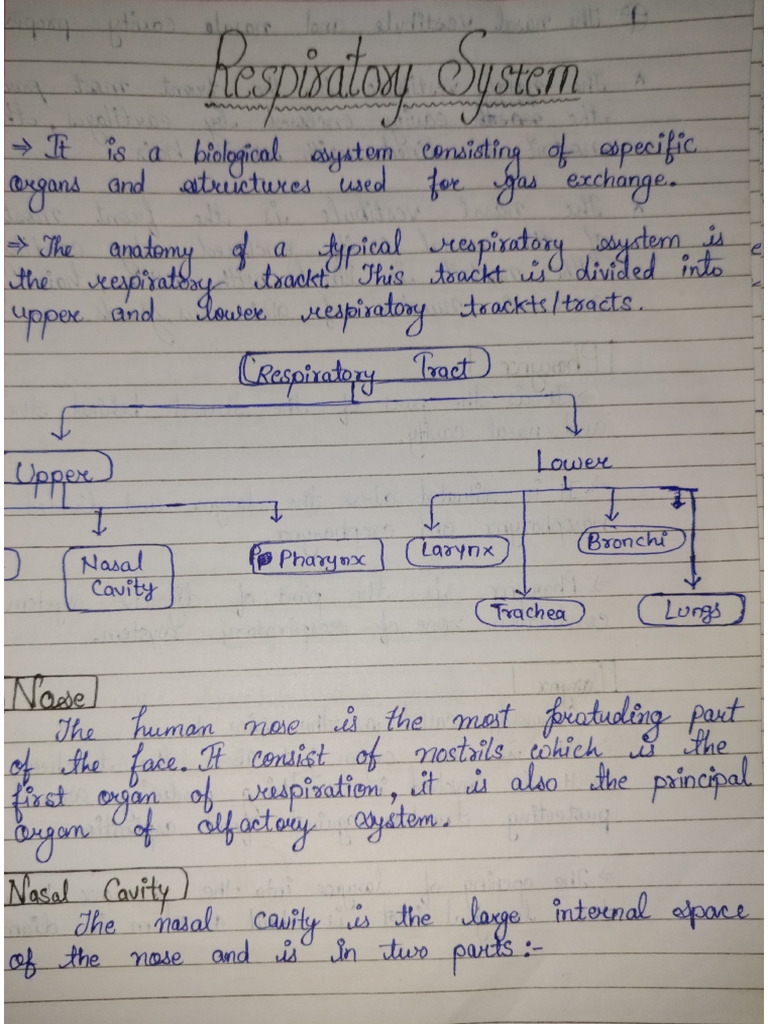 Respiratory System
→ It is a biological system consisting of specific
organs and structures used for gas exchange.
→ The anatomy of a typical respiratory system is
the respiratory trackt. This trackt is divided into
upper and lower respiratory trackts/tracts.
Respiratory Tract
Upper
Lower
Nasal
Cavity
Pharynx
Larynx
Bronchi
Trachea
Lungs
Nose
The human nose is the most protuding part
of the face. It consist of nostrils which is the
first organ of respiration, it is also the principal
organ of olfactory system.
Nasal Cavity
The nasal cavity is the large internal space
of the nose and is in two parts :-